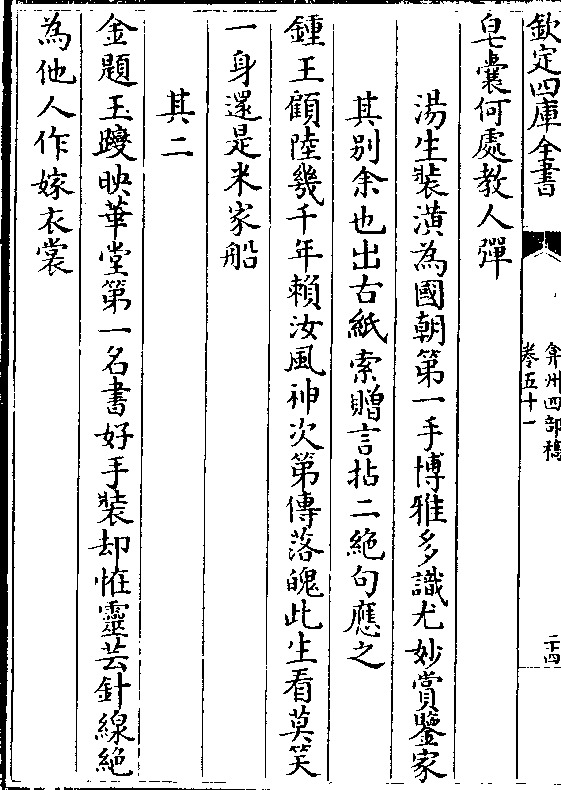 欽定四庫全書
弇州四部稿
卷五十一
二十四
皂囊何處教人彈
湯生裝潢為國朝第一手博雅多識尤妙賞鑒家
其别余也出古紙索贈言拈二絶句應之
鍾王顧陸幾千年賴汝風神次第傳落魄此生看莫笑
一身還是米家船
其二
金題玉躞映華堂第一名書好手裝却恠靈芸針線絶
為他人作嫁衣裳